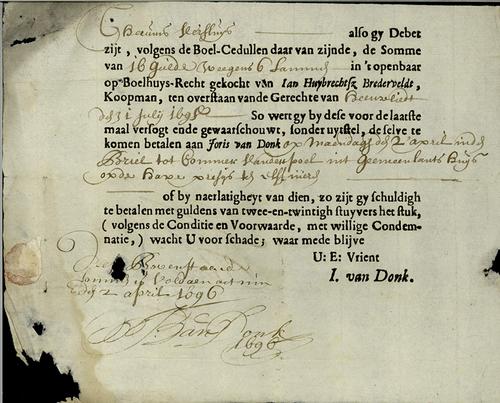 Theunis Verhuys also gy Debet
zijt, volgens de Boel-Cedullen daar van zijnde, de Somme
van 16 Gulde Weegens 6 Lammeren in 's openbaar
op Boelhuys-Recht gekocht van Ian Huybrechtsz Bredervelt,
Koopman, ten overstaan van de Gerechte van
den 31 July 1695 So wert gy by dese voor de laatste
maal versogt ende gewaarschouwt, sonder uytstel, de selve te
komen betalen aan Joris van Donk op Maendagh den 2 april in den
Briel tot Commer int Gemeenlants Huys
op de precijs ten
of by naerlatigheyt van dien, zo zijt gy schuldigh
te betalen met guldens van twee-en-twintigh stuyvers het stuk,
( volgens de Conditie en Voorwaarde, met willige Condem-
natie, ) wacht U voor schade; waar mede blijve
U: E: Vrient
I. van Donk.
Dese Bovenstaende
Somme is Voldaen aen mijn
den 2 april 1696
J van Donk
1696